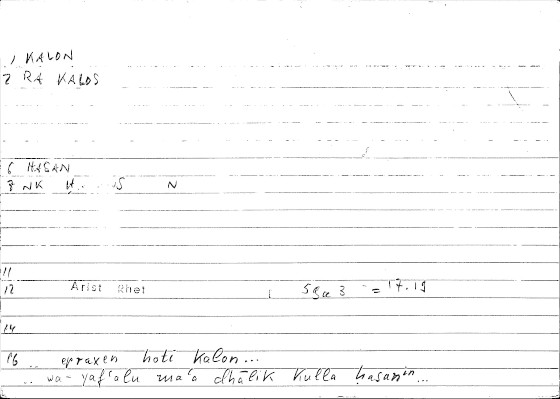 1 KALON
2 RA KALOS
6 HASAN
8 NK Ḥ. S N
11
12 Arist Rhet 1 59a 3 = 17.19
14
16 .. epraxen hoti kalon...
.. wa-yafʿalu maʿa dhālik kulla ḥasanⁱⁿ...